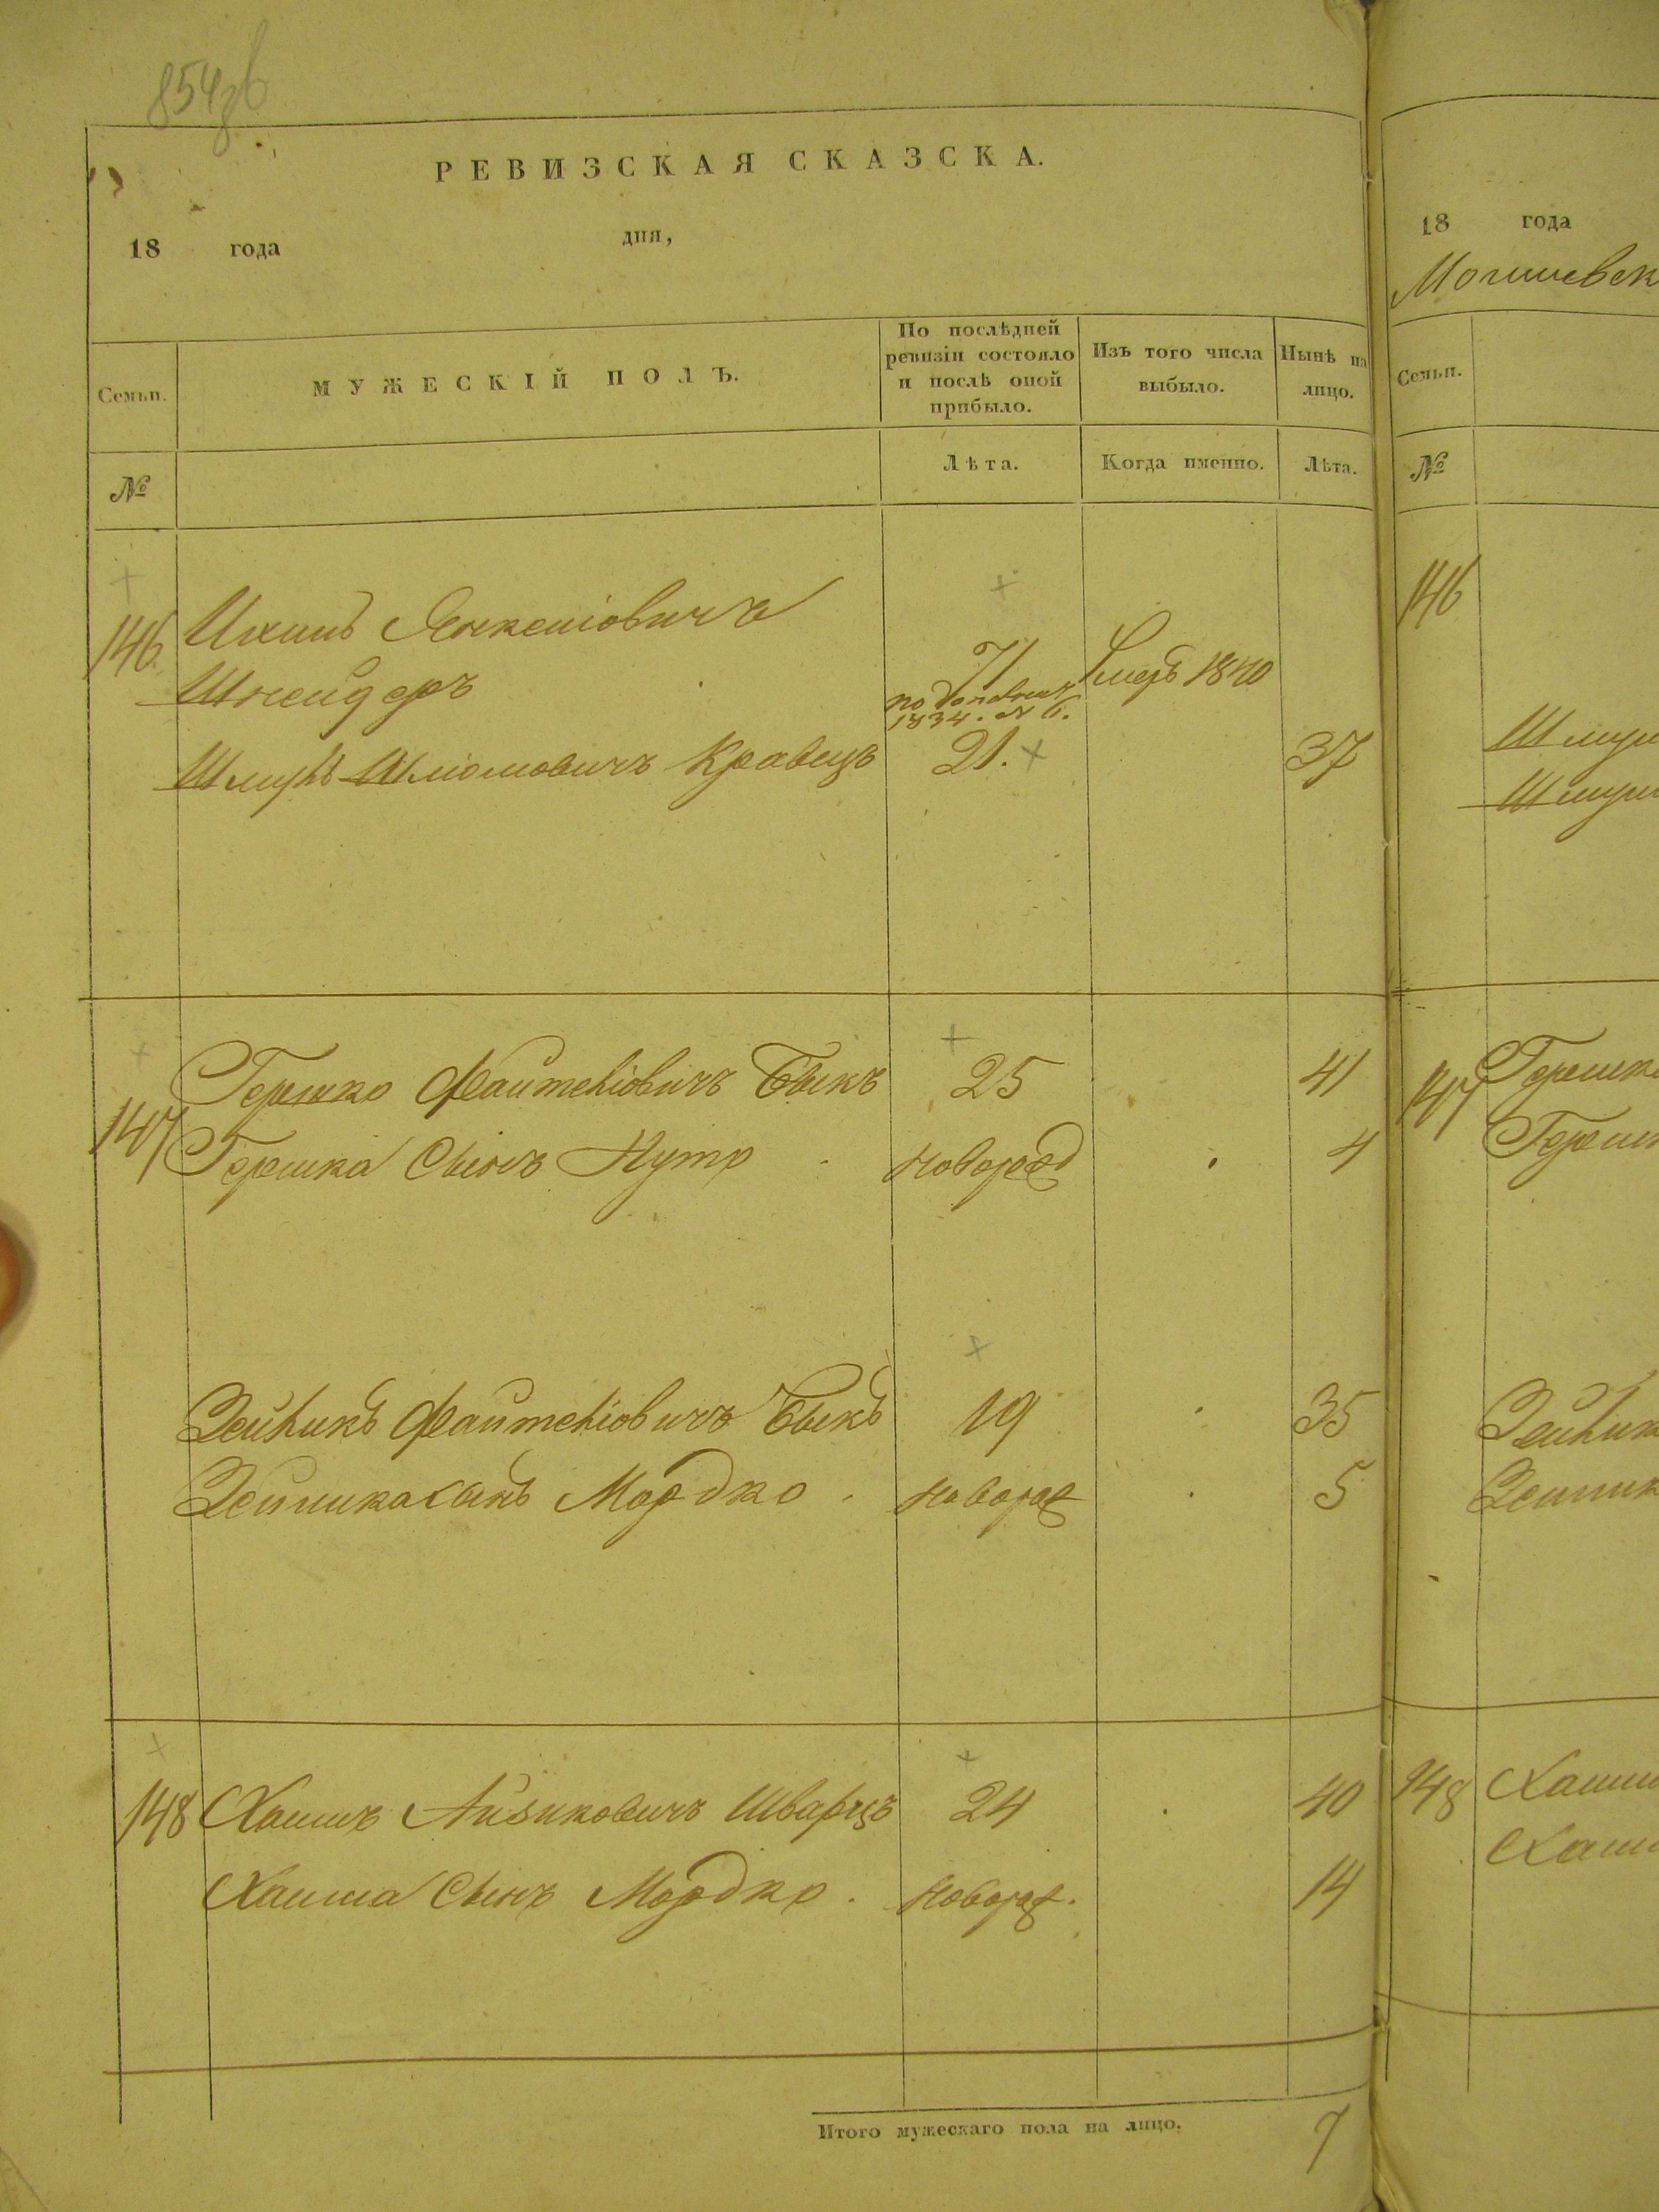 854об
РЕВИЗСКАЯ СКАЗСКА.
18 года дня,
Семьи. МУЖЕСКІЙ ПОЛЪ. По послѣдней ревизіи состояло и послѣ оной прибыло. Изъ того числа выбыло. Нынѣ на лицо.
№ Лѣта. Когда именно. Лѣта.
146 Ихилъ Янкеліовичъ
Шнейдеръ 71 Умеръ 1840
по дополнит
1834. № 6.
Шмулъ Шліомовичъ Кравецъ 21. 37
147 Гершко Файтеліовичъ Быкъ 25 41
Гершка Сынъ Нутэ новорожд 4
Зейликъ Файтеліовичъ Быкъ 19 35
Зейлика сынъ Мордко новорож 5
148 Хаимъ Айзиковичъ Шварцъ 24 40
Хаима Сынъ Мордко. новорож. 14
Итого мужескаго пола на лицо. 7
18 года
Могилевск
Семьи.
№
146
Шмул
Шмул
147 Гершк
Герш
Зейлик
Зейлик
148 Хаим
Хаим